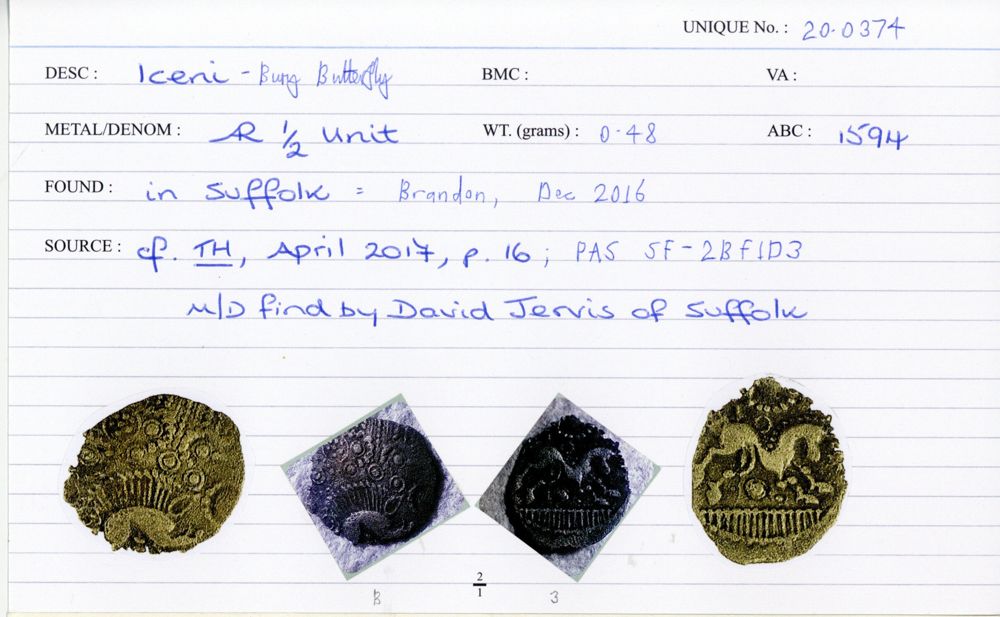 UNIQUE No. : 20.0374
DESC : Iceni - Bury Butterfly BMC : VA :
METAL/DENOM : AR 1/2 unit WT. (grams) : 0.48 ABC : 1594
FOUND : in Suffolk = Brandon, Dec 2016
SOURCE : cf. TH, April 2017, p. 16 ; PAS SF-2BF1D3
M/D find by David Jervis of Suffolk
2/1
B 3